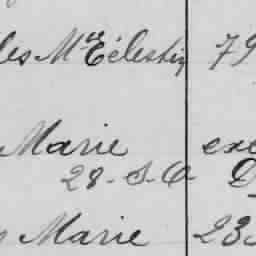 les Mce Célestin 79
Marie exe
28 - S. O D
Marie 23